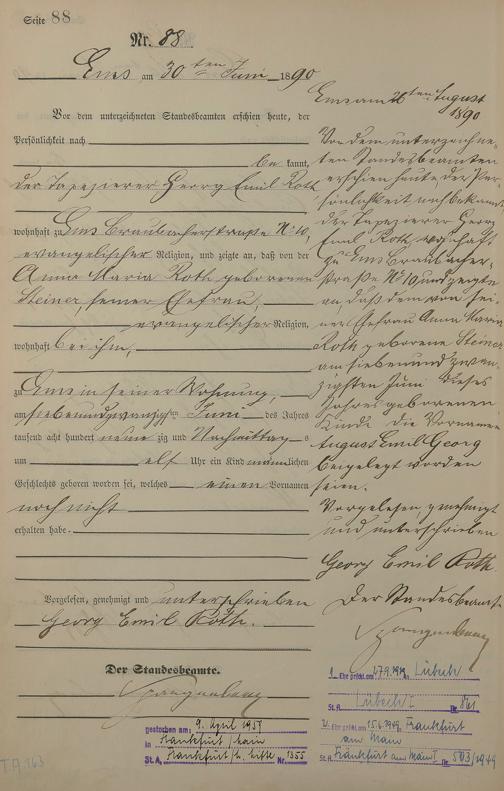 Seite 88
Nr. 88
Ems am 30ten Juni 1890
Vor dem unterzeichneten Standesbeamten erschien heute, der
Persönlichkeit nach
bekannt,
der Tapezierer Georg Emil Roth
wohnhaft zu Ems Braubacherstraße No 10,
evangelischer Religion, und zeigte an, daß von der
Anna Maria Roth geborenen
Steiner, seiner Ehefrau,
evangelischer Religion,
wohnhaft bei ihm,
zu Ems in seiner Wohnung,
am siebenundzwanzigsten Juni des Jahres
tausend acht hundert neunzig und Nachmittags
um elf Uhr ein Kind männlichen
Geschlechts geboren worden sei, welches einen Vornamen
noch nicht
erhalten habe.
Vorgelesen, genehmigt und unterschrieben
Georg Emil Roth.
Der Standesbeamte.
Spangenberg
Ems am ten August
1890
Vor dem unterzeichne-
ten Standesbeamten
erschien heute, der Per-
sönlichkeit nach bekannt
der Tapezierer Georg
Emil Roth, wohnhaft
zu Ems Braubacher-
straße No 10, und zeigte
an, daß dem von sei-
ner Ehefrau Anna Maria
Roth geborene Steiner
am siebenundzwan-
zigsten Juni dieses
Jahres geborenen
Kinde die Vornamen
August Emil Georg
beigelegt worden
seien.
Vorgelesen, genehmigt
und unterschrieben
Georg Emil Roth
Der Standesbeamte
Spangenberg
gestorben am: 9. April 1957
in Frankfurt/Main
St. A. Frankfurt/M. Nr. 1355
1. Ehe geschl. am: in Lübeck
St. A. Lübeck I Nr.
2. Ehe geschl. am: 15.6.1949 in Frankfurt
am Main
St. A. Frankfurt am Main I Nr. 503/1949